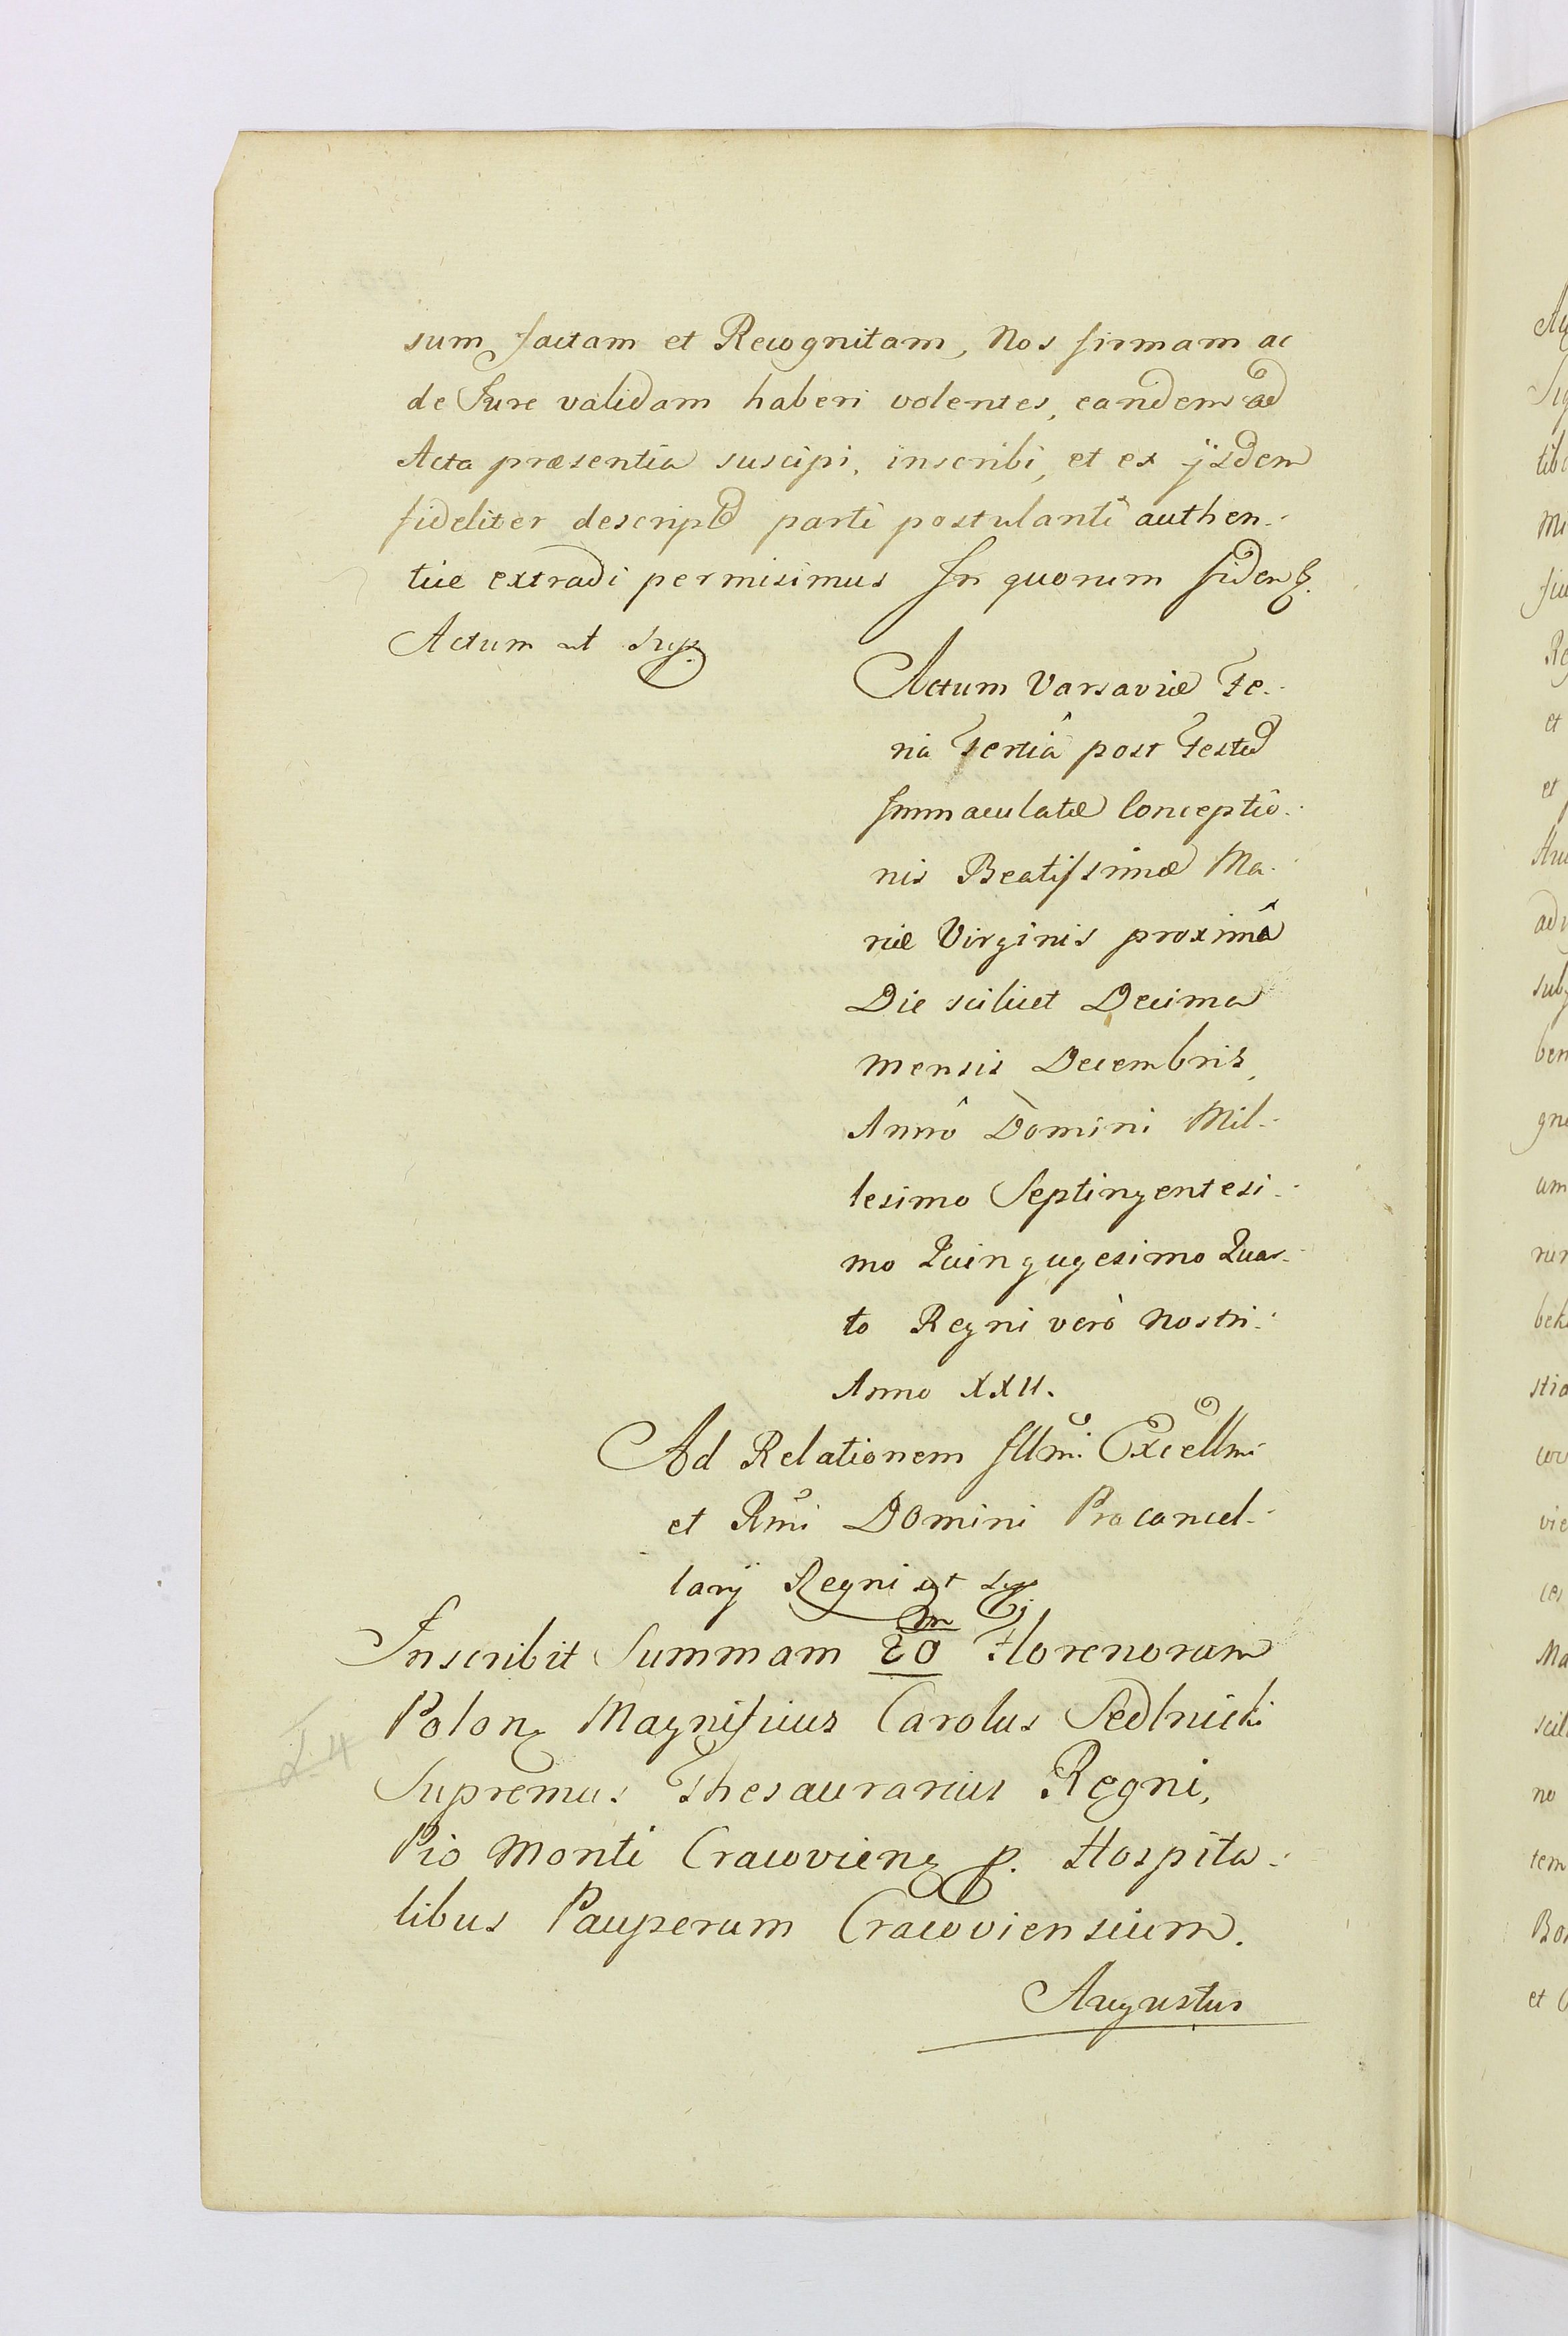 sum factam et Recognitam, Nos firmam ac
de Jure validam haberi volentes, eandem ad
Acta præsentia suscipi, inscribi, et ex ijsdem
fideliter descriptã parti postulanti authen-
tice extradi permisimus In quorum fidem &.
Actum ut sup.
Actum Varsaviæ Fe-
ria Tertiâ post Festum
Immaculatæ Conceptio-
nis Beatissimæ Ma-
riæ Virginis proximâ
Die scilicet Decima
mensis Decembris,
Annô Domini Mil-
lesimo Septingentesi-
mo Quinqugesimo Quar-
to Regni verò Nostri
Anno XXII.
Ad Relationem Illmi. Excellmi
et Rmi Domini Procancel-
larij Regni ut sup.
Inscribit Summam 20 m Florenorum
Polon. Magnificus Carolus Sedlnicki
Supremus Thesaurarius Regni,
Pio Monti Cracovien. p. Hospita-
libus Pauperum Cracoviensium.
Augustus